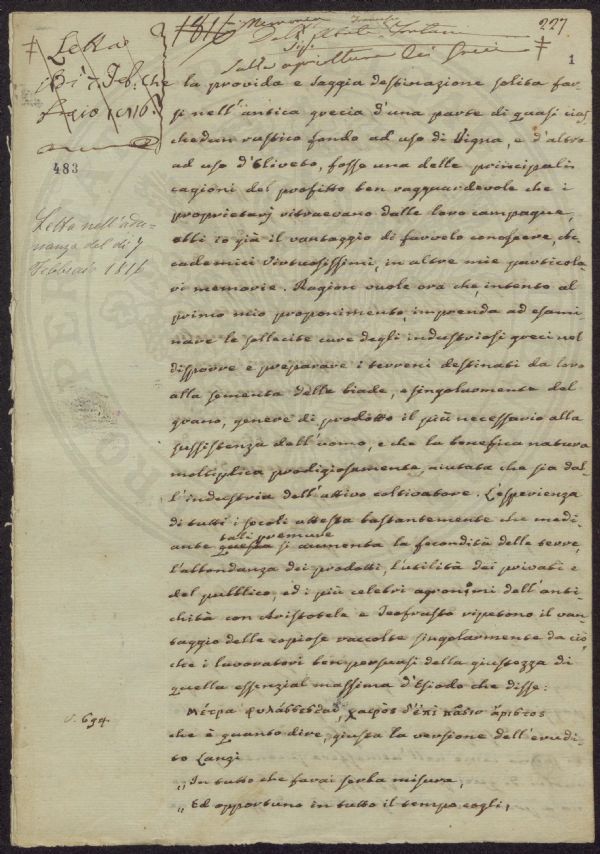 1816 Memoria
Dell'Abate Fortani
Sulla agricoltura dei Greci
227
1
Letta
il dì 7. Feb.
1816
483
Letta nell'adu-
nanza del dì 7
Febbraio 1816
Che la provida e saggia destinazione solita far-
si nell'antica grecia d'una parte di quasi cias-
chedun rustico fondo ad uso di Vigna, e d'altra
ad uso d'Uliveto, fosse una delle principali
cagioni del profitto ben ragguardevole che i
proprietarj ritraevano dalle loro campagne,
ebbi io già il vantaggio di farvelo conoscere, Ac-
cademici Virtuosissimi, in altre mie particola-
ri memorie. Ragion vuole ora che, intento al
primo mio proponimento, imprenda ad esami-
nare le sollecite cure degli industriosi greci nel
disporre e preparare i terreni destinati da loro
alla sementa delle biade, e singolarmente del
grano, genere di prodotto il più necessario alla
sussistenza dell'uomo, e che la benefica natura
moltiplica prodigiosamente, aiutata che sia dal-
l'industria dell'attivo coltivatore. L'esperienza
di tutti i secoli attesta bastantemente che medi-
tali premure
ante questa si aumenta la fecondità delle terre,
l'abbondanza dei prodotti, l'utilità dei privati e
del pubblico, ed i più celebri agronimi dell'anti-
chità con Aristotele e Teofrasto ripetono il van-
taggio delle copiose raccolte singolarmente da ciò,
che i lavoratori ben persuasi della giustezza di
quella essenzial massima d'Esiodo che disse:
Μέτρα φυλάσσεσθαι, χαιρὸς δ'ἐπὶ πᾶσιν ἄριστος
v. 694.
che è quanto dire, giusta la versione dell'erudi-
to Lanzi
„ In tutto che farai serba misura,
„ Ed opportuno in tutto il tempo cogli,